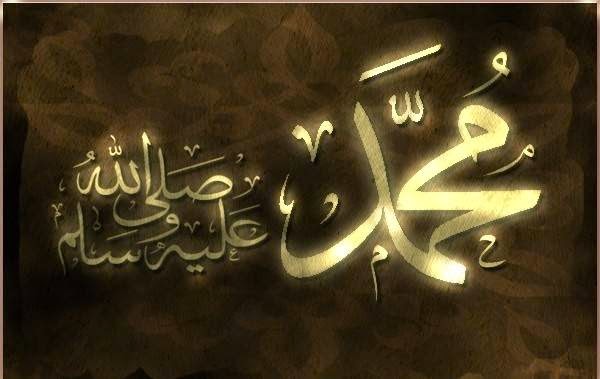 مُحَمَّد
صَلَى اللهُ
عَلَيهِ وسَلم